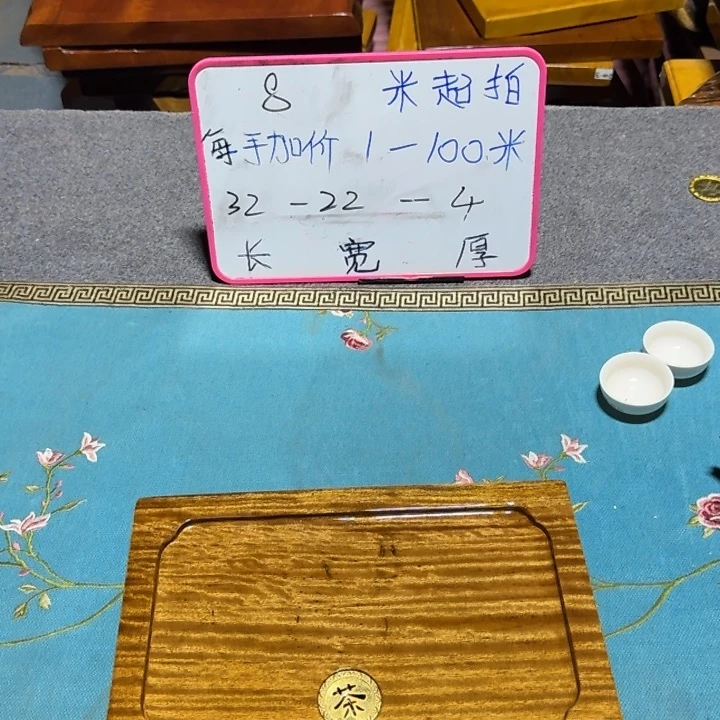 8 米起拍
每手加价1一100米
32 - 22 -- 4
长 宽 厚
茶